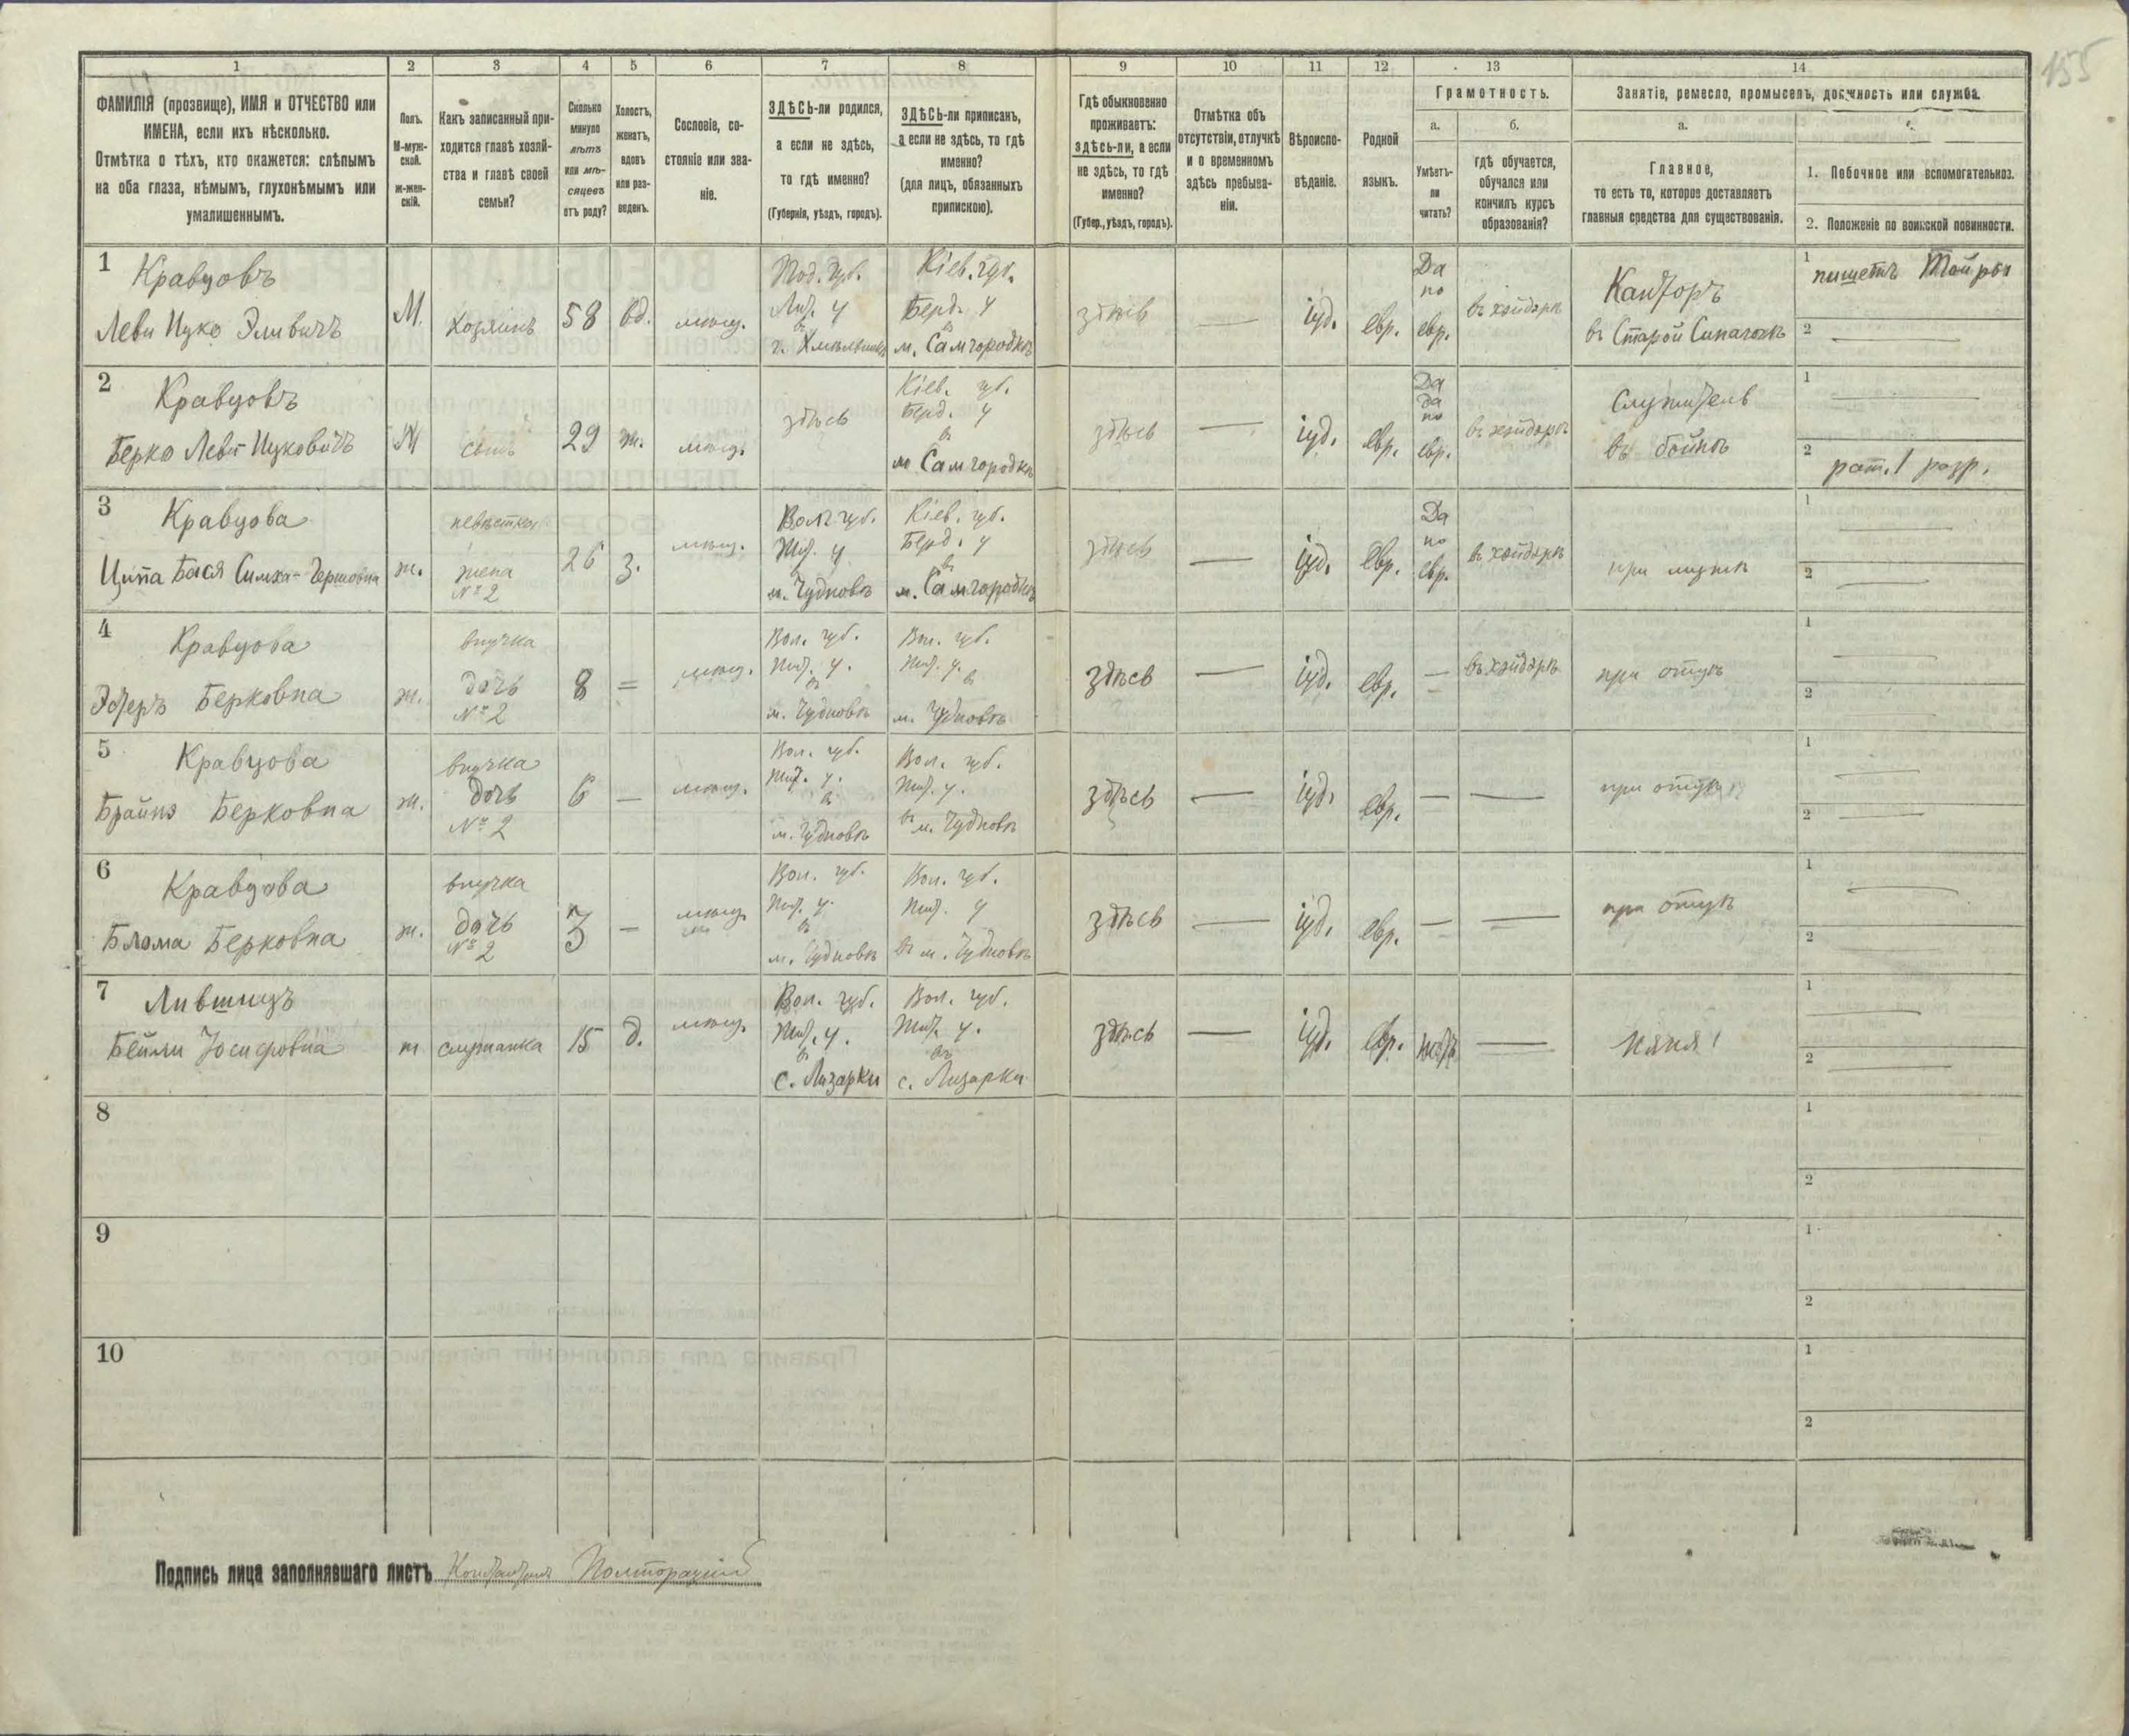 155
1 2 3 4 5 6 7 8 9 10 11 12 13 14
ФАМИЛІЯ (прозвище), ИМЯ и ОТЧЕСТВО или
ИМЕНА, если ихъ нѣсколько.
Отмѣтка о тѣхъ, кто окажется: слѣпымъ
на оба глаза, нѣмымъ, глухонѣмымъ или
умалишеннымъ.
Полъ.
М-муж-
ской.
ж-жен-
скій.
Какъ записанный при-
ходится главѣ хозяй-
ства и главѣ своей
семьи?
Сколько
минуло
лѣтъ
или мѣ-
сяцевъ
отъ роду?
Холостъ,
женатъ,
вдовъ
или раз-
веденъ.
Сословіе, со-
стояніе или зва-
ніе.
ЗДѢСЬ-ли родился,
а если не здѣсь,
то гдѣ именно?
(Губернія, уѣздъ, городъ).
ЗДѢСЬ-ли приписанъ,
а если не здѣсь, то гдѣ
именно?
(для лицъ, обязанныхъ
припискою).
Гдѣ обыкновенно
проживаетъ:
здѣсь-ли, а если
не здѣсь, то гдѣ
именно?
(Губер., уѣздъ, городъ).
Отмѣтка объ
отсутствіи, отлучкѣ
и о временномъ
здѣсь пребыва-
ніи.
Вѣроиспо-
вѣданіе.
Родной
языкъ.
Грамотность.
а.
Умѣетъ-
ли
читать?
б.
гдѣ обучается,
обучался или
кончилъ курсъ
образованія?
Занятіе, ремесло, промыселъ, должность или служба.
а.
Главное,
то есть то, которое доставляетъ
главныя средства для существованія.
1. Побочное или вспомогательноз.
2. Положеніе по воинской повинности.
1
Кравцовъ
Леви Ицко Эливичъ
М.
хозяинъ
58
вд.
мѣщ.
Под. губ.
Лит. у
въ
г. Хмѣльникѣ
Кіев. губ.
Берд. у
въ
м. Самгородкѣ
здѣсь
—
іуд.
евр.
Да
по
евр.
въ хэйдэрѣ
Канторъ
въ Старой Синагогѣ
1
пишетъ Тойры
2 —
2
Кравцовъ
Берко Леви-Ицковичъ
М
сынъ
29
ж.
мѣщ.
здѣсь
Кіев. губ.
Берд. у
въ
м Самгородкѣ
здѣсь
—
іуд.
евр.
Да
да
по
евр.
въ хэйдэрѣ
Служитель
въ бойнѣ
1 —
2
рат. 1 разр.
3
Кравцова
Ципа Бася Симха-Гершовна
ж.
невѣстка
жена
№ 2
26
З.
мѣщ.
Вол. губ.
Жит. у
въ
м. Чудновѣ
Кіев. губ.
Берд. у
въ
м. Самгородкѣ
здѣсь
—
іуд.
евр.
Да
по
евр.
въ хэйдэрѣ
при мужѣ
1 —
2 —
4
Кравцова
Эстеръ Берковна
ж.
внучка
дочь
№ 2
8
=
мѣщ.
Вол. губ.
Жит. у.
въ
м. Чудновѣ
Вол. губ.
Жит. у.
въ
м. Чудновѣ
здѣсь
—
іуд.
евр.
—
въ хэйдэрѣ
при отцѣ
1 —
2 —
5
Кравцова
Брайнэ Берковна
ж.
внучка
дочь
№ 2
6
—
мѣщ.
Вол. губ.
Жит. у.
въ
м. Чудновѣ
Вол. губ.
Жит. у.
въ м. Чудновѣ
здѣсь
—
іуд.
евр.
—
—
при отцѣ
1 —
2 —
6
Кравцова
Блюма Берковна
ж.
внучка
дочь
№ 2
3
—
мѣщ.
Вол. губ.
Жит. у.
въ
м. Чудновѣ
Вол. губ.
Жит. у
въ м. Чудновѣ
здѣсь
—
іуд.
евр.
—
—
при отцѣ
1 —
2 —
7
Лившицъ
Бейли Іосифовна
ж
служанка
15
д.
мѣщ.
Вол. губ.
Жит. у.
въ
с. Лизарки
Вол. губ.
Жит. у.
въ
с. Лизарки
здѣсь
—
іуд.
евр.
нѣтъ
—
няня
1 —
2 —
8
1
2
9
1
2
10
1
2
Подпись лица заполнявшаго листъ Константинъ Полторацкій